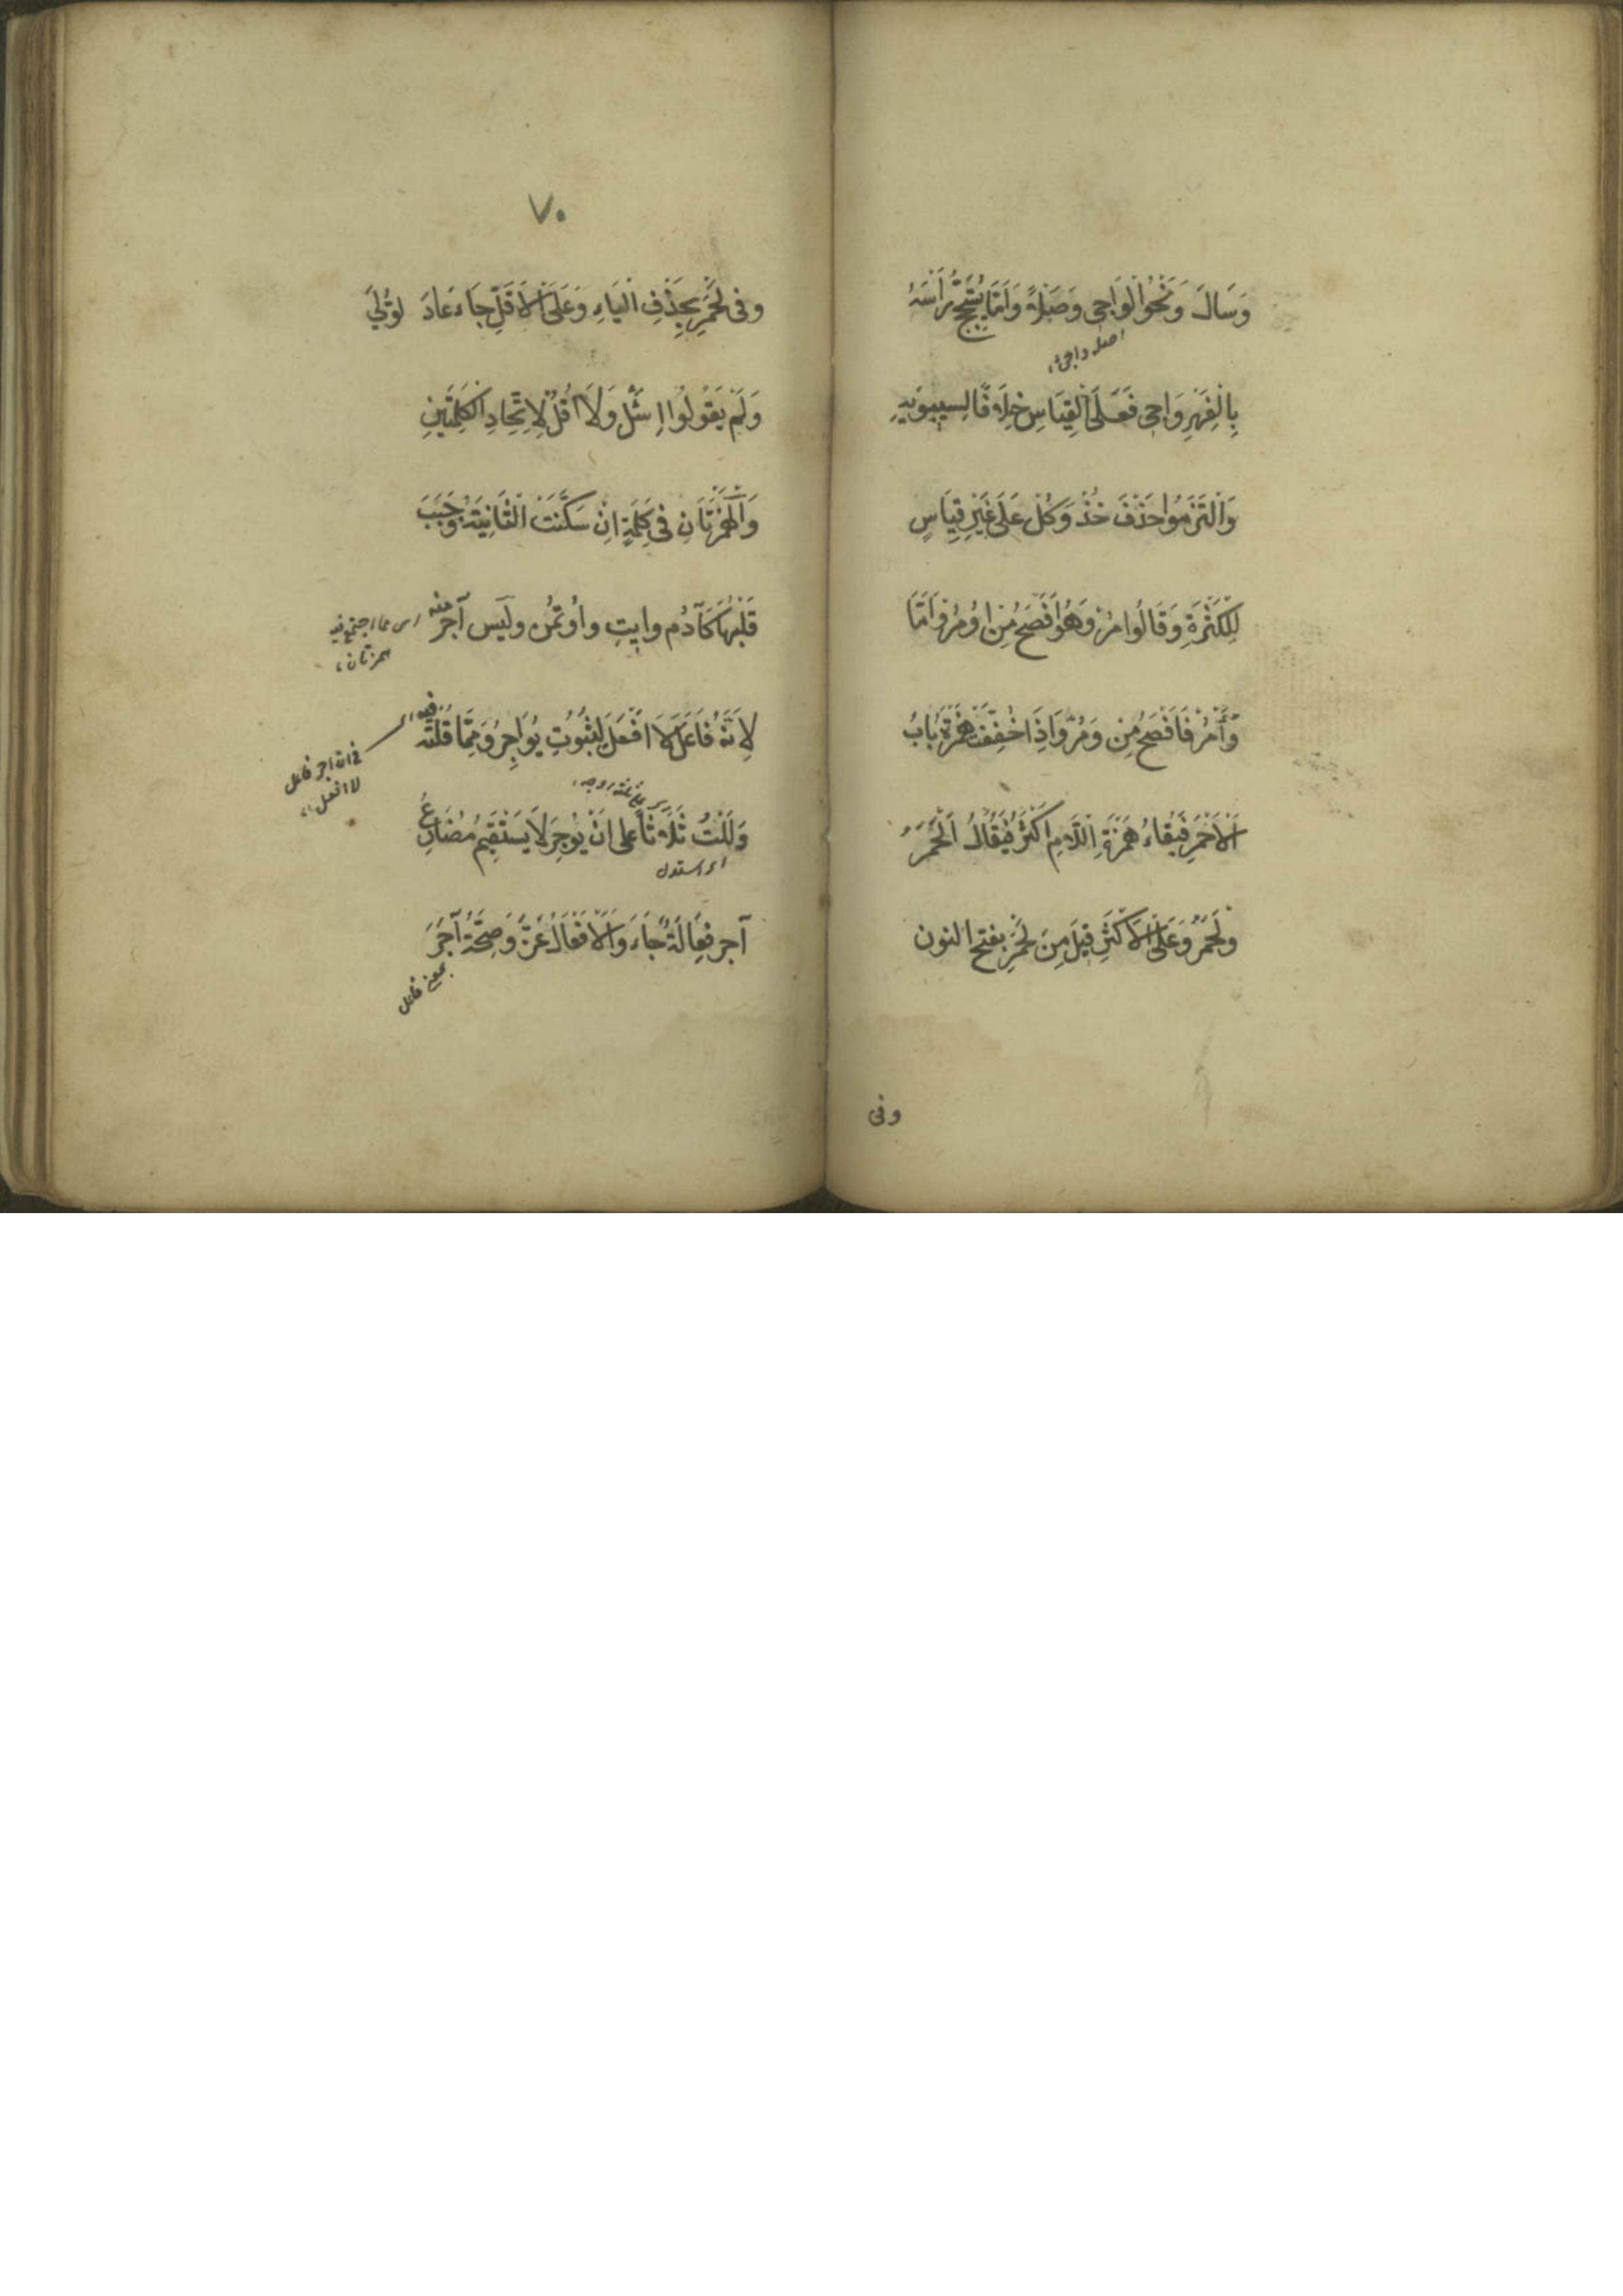 وَسَالَ وَنَحْوُ الْوَاجِى وَصَلًا وَاَمَّا يُشَجِّجُ رَأْسَهُ
اصله واجئ
بِالْفِهْرِ وَاجِى فَعَلَى الْقِيَاسِ خِلَافًا لِسِيبَوَيهِ
وَالْتَزَمُوا حَذْفَ خُذْ وَكُلْ عَلَى غَيْرِ قِيَاسٍ
لِلْكَثْرَةِ وَقَالُوا مُرْ وَهُوَ اَفْصَحُ مِنْ اُومُرْ وَاَمَّا
وَأْمُرْ فَاَفْصَحُ مِن وَمُرْ وَاِذَا خُفِّفَتْ هَمْزَةُ بَابُ
اَلْاَحْمَرِ فَبَقَاءُ هَمْزَةِ اللَّامِ اَكْثَرُ فَيُقَالُ اَلَحْمَرُ
وَلَحْمَرُ وَعَلَى الْاَكْثَرِ قِيلَ مِنَ لَحْمَرِ بفتح النون
وفى
٧٠
وفى لَحْمَرِ بِحَذْفِ الْيَاءِ وَعَلَى الْاَقَلِّ جَاءَ عَادَ لُّولَى
وَلَمْ يَقُولُوا اِسَلْ وَلَا اُقُلْ لِاِتِّحَادِ الْكَلِمَتَيْنِ
وَالْهَمْزَتَانِ فى كَلِمَةٍ اِنْ سَكَنَت الثَّانِيَةُ وَجَبَ
قَلْبُهَا كَآدَم وايتِ واُوتُمن وليس آجَرَ منه
اى مما اجتمع فيه
همزتان
لِاَنَّهُ فَاعَلَ لَا اَفْعَلَ لِثُبُوتِ يُوَاجِرُ وَمِمَّا قُلْتُه فيه
اى فى ان آجر فاعل
لا افعل
وَلَلْتُ ثَلَاثًا عَلى اَنْ يُوجِرَ لَا يَسْتَقِيمُ مُضَارِعُ
اى استدل
آجر فِعَالَةٌ جَاءَ وَالْاِفْعَالُ عَزَّ وَصِحَّةُ آجَرَ
بمعنى فاعل